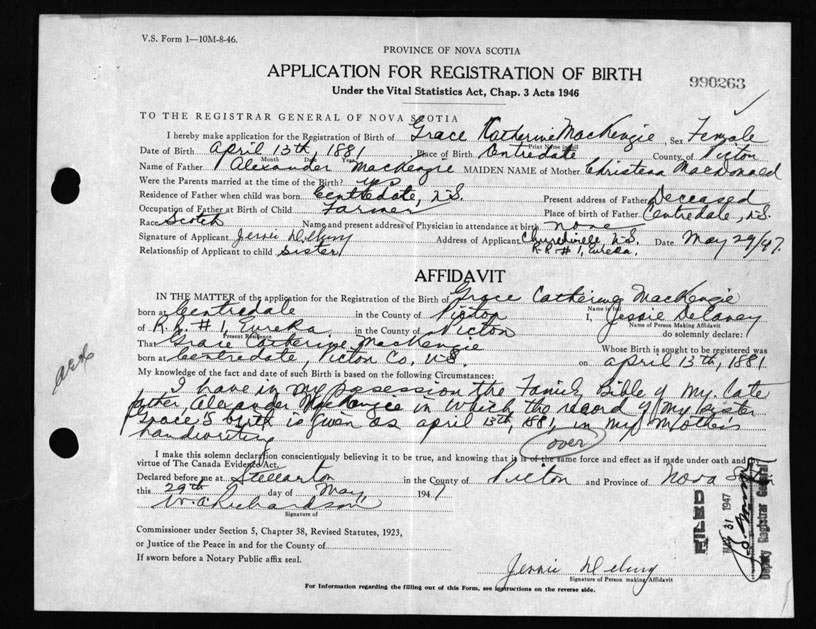 V.S. Form 1—10M-8-46.
PROVINCE OF NOVA SCOTIA
APPLICATION FOR REGISTRATION OF BIRTH
990263
Under the Vital Statistics Act, Chap. 3 Acts 1946
TO THE REGISTRAR GENERAL OF NOVA SCOTIA
I hereby make application for the Registration of Birth of Grace Katherine MacKenzie Sex Female
Print Name in full
Date of Birth April 13th, 1881 Place of Birth Centredale County of Pictou
Month Date Year
Name of Father Alexander MacKenzie MAIDEN NAME of Mother Christena MacDonald
Were the Parents married at time of the Birth? yes
Residence of Father when child was born Centredale, N.S. Present address of Father Deceased
Occupation of Father at Birth of Child Farmer Place of birth of Father Centredale, N.S.
Race Scotch Name and present address of Physician in attendance at birth none
Signature of Applicant Address of Applicant Churchville N.S. Date May 29/47.
R.R. #1, Eureka.
Relationship of Applicant to child sister
AFFIDAVIT
IN THE MATTER of the application for the Registration of the Birth of Grace Catherine MacKenzie
Name in full
born at Centredale in the County of Pictou I, Jessie DeLaney
Name of Person Making Affidavit
of R.R. #1, Eureka in the County of Pictou do solemnly declare:
Present Residence
That Grace Catherine MacKenzie Whose Birth is sought to be registered was
born at Centredale, Pictou Co. N.S. on April 13th, 1881
My knowledge of the fact and date of such Birth is based on the following Circumstances:
I have in my posession the Family Bible of my late
father, Alexander MacKenzie in which the record of my sister
Grace's birth is given as April 13th, 1881, in my Mother's
handwriting
over
I make this solemn declaration conscientiously believing it to be true, and knowing that it is of the same force and effect as if made under oath and by
virtue of The Canada Evidence Act.
Declared before me at Stellarton in the County of Pictou and Province of Nova
this 29th day of May, 1947
W C Richardson
Signature of
Commissioner under Section 5, Chapter 38, Revised Statutes, 1923,
or Justice of the Peace in and for the County of
If sworn before a Notary Public affix seal.
Signature of Person making Affidavit
FILED
31 1947
Deputy Registrar General
For Information regarding the filling out of this Form, see instructions on the reverse side.